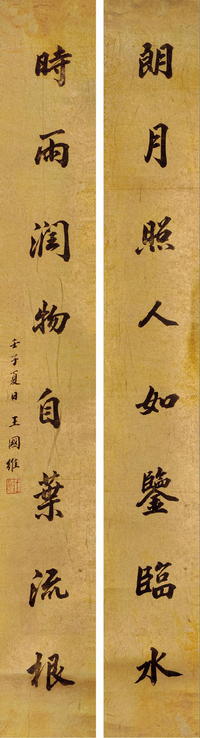 朗月照人如鑒臨水
時雨潤物自葉流根
壬子夏日王國維